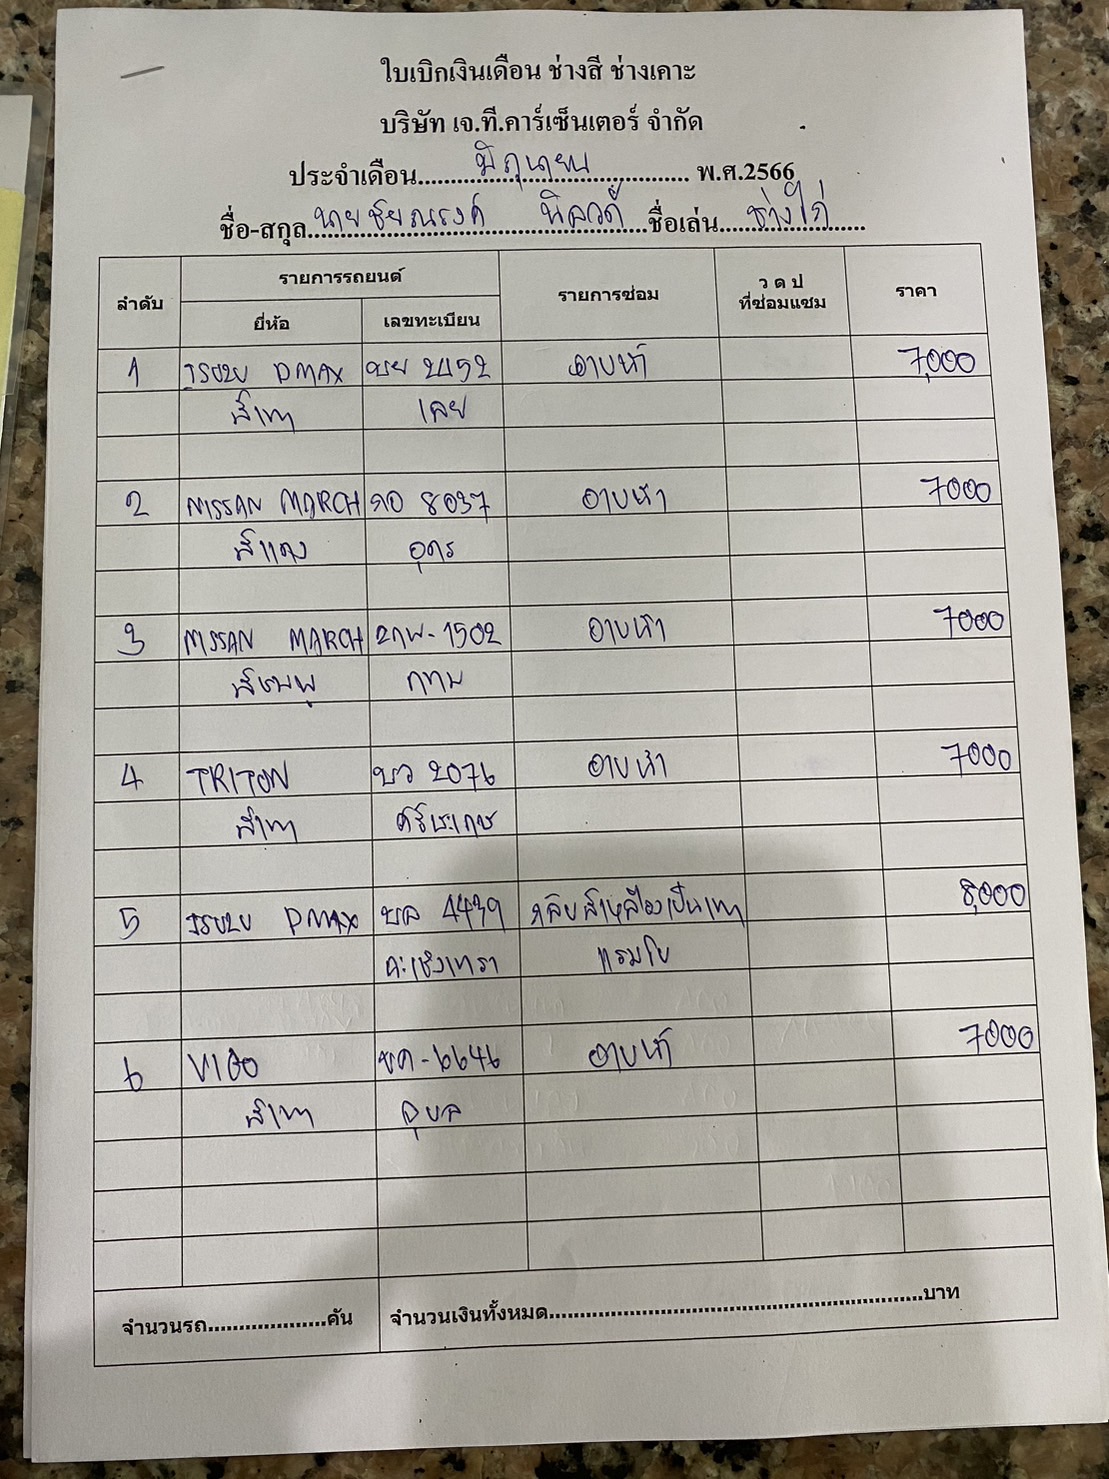 ใบเบิกเงินเดือน ช่างสี ช่างเคาะ
บริษัท เจ.ที.คาร์เซ็นเตอร์ จำกัด
ประจำเดือน มิถุนายน พ.ศ.2566
ชื่อ-สกุล นายชัยณรงค์ ชื่อเล่น ช่างไก่
ลำดับ รายการรถยนต์ รายการซ่อม ว ด ป ที่ซ่อมแซม ราคา
ยี่ห้อ เลขทะเบียน
1 ISUZU DMAX 2452 อาบน้ำ 7,000
สีเทา เลย
2 NISSAN MARCH 8037 อาบน้ำ 7000
สีแดง อุดร
3 NISSAN MARCH 2กพ-1502 อาบน้ำ 7000
สีชมพู กทม
4 TRITON บว 2076 อาบน้ำ 7000
สีเทา ศรีษะเกษ
5 ISUZU DMAX 4439 พลิบสีเหลืองเป็นเทา 8,000
ฉะเชิงเทรา แรมโบ
6 VIGO 6646 อาบน้ำ 7000
สีเทา อุบล
จำนวนรถ....................คัน จำนวนเงินทั้งหมด..............................บาท